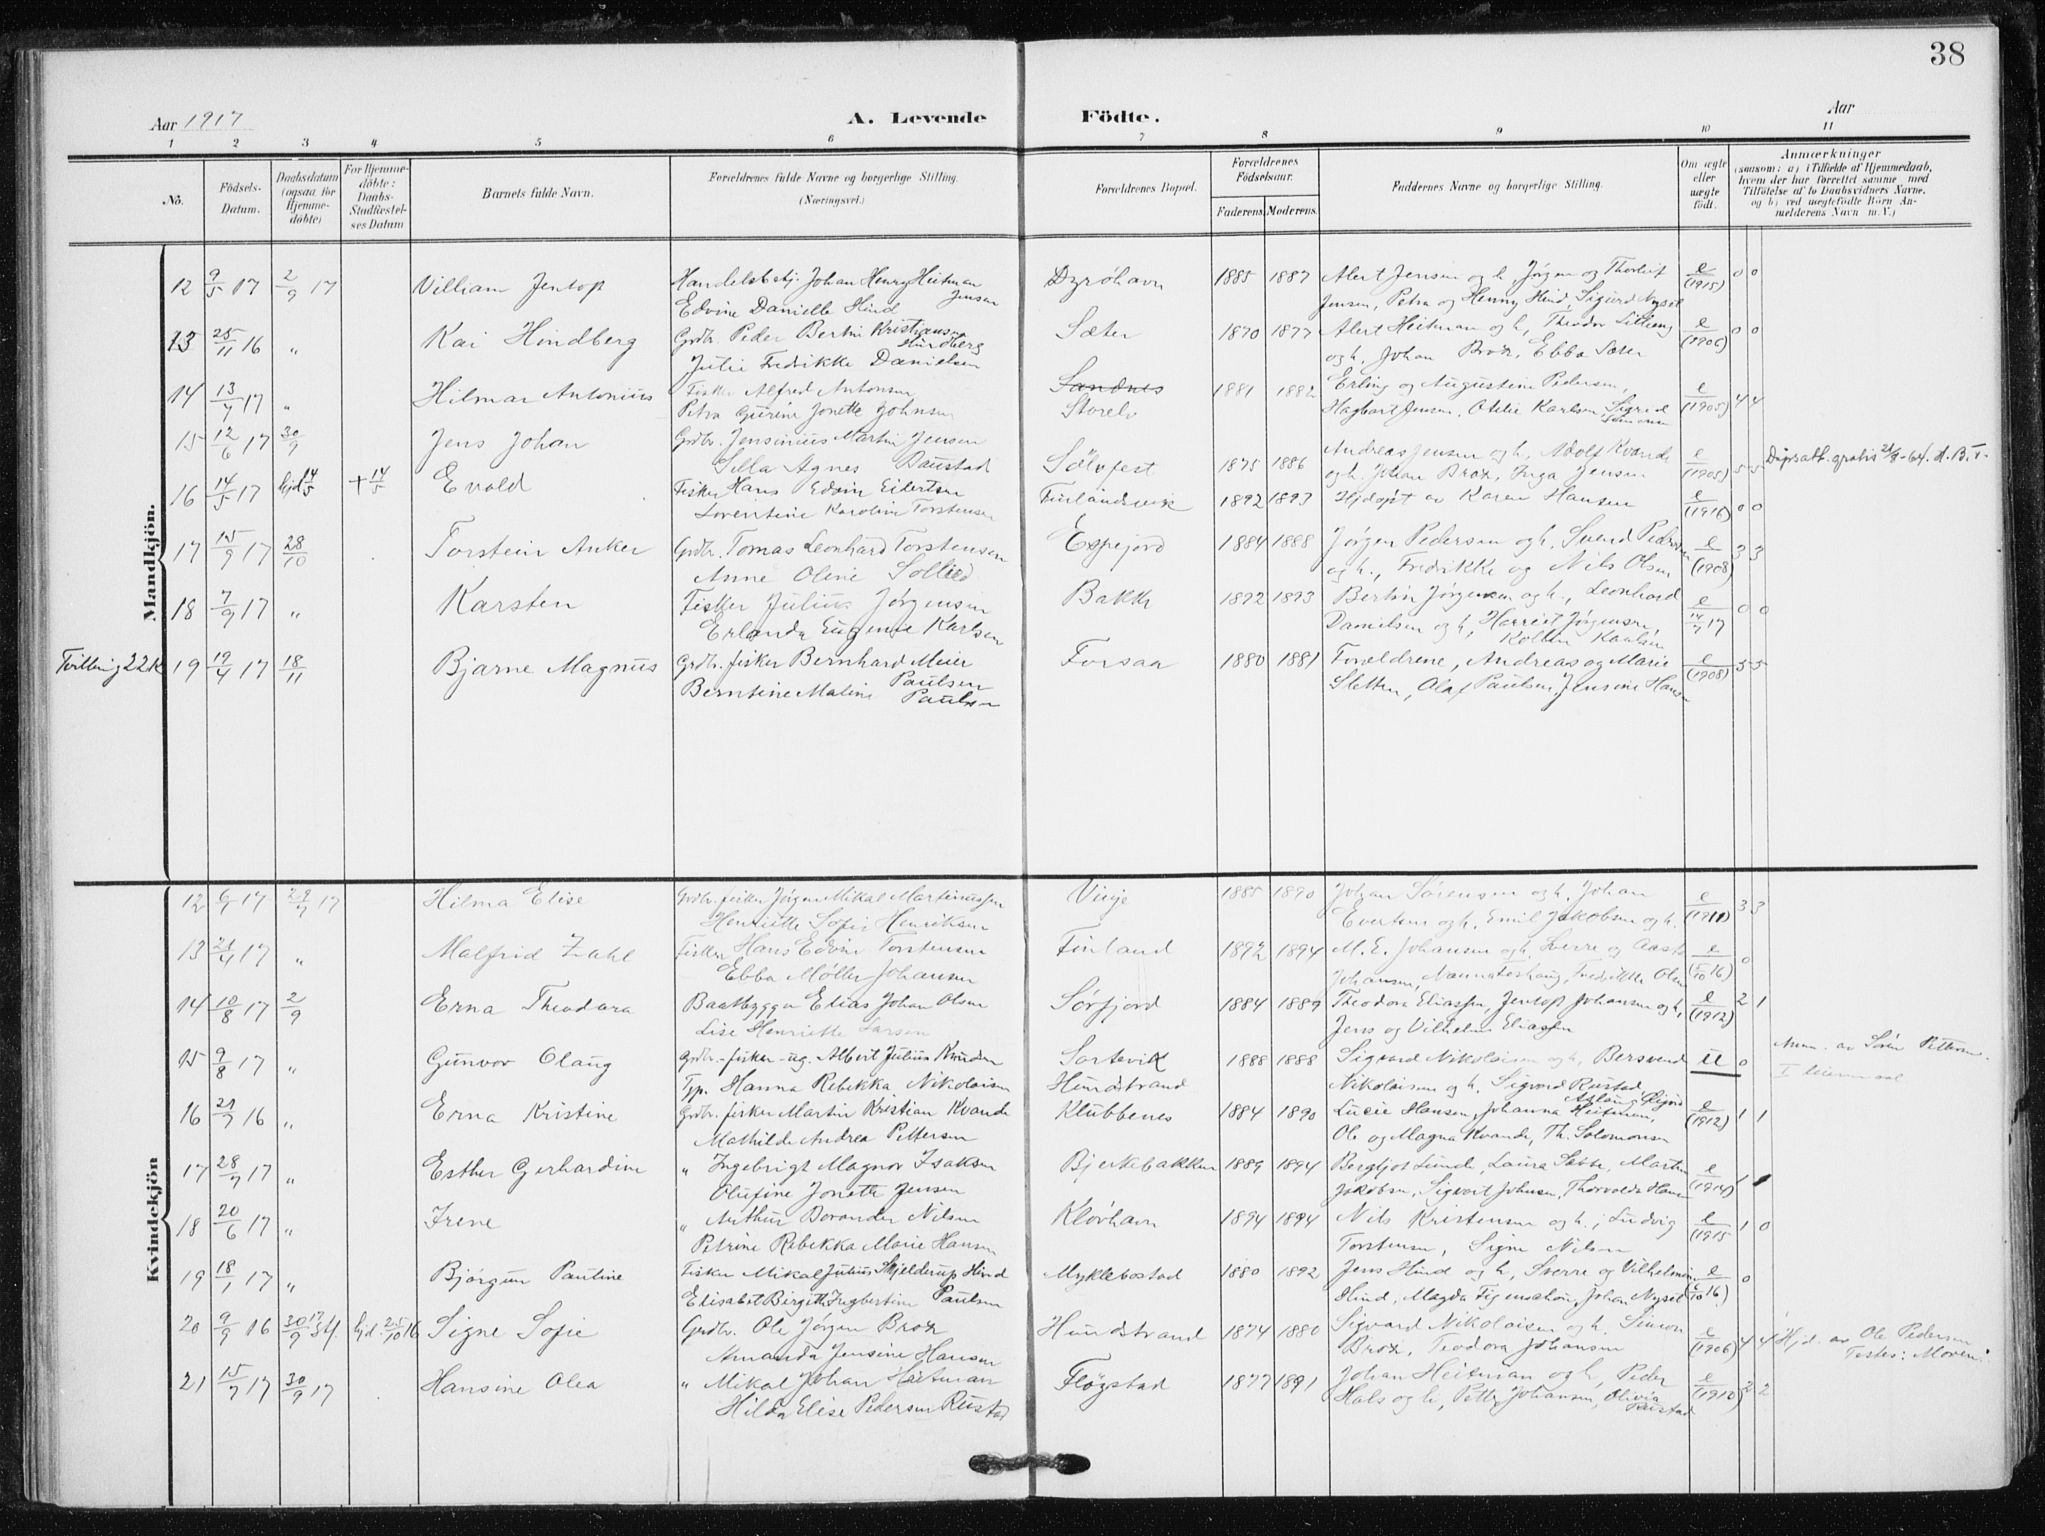 38
Aar 1917
A. Levende Födte.
Aar
1 2 3 4 5 6 7 8 9 10 11
No.
Födsels-Datum.
Daabsdatum (ogsaa for Hjemme-döbte)
For Hjemme-döbte: Daabs-Stadfæstel-ses Datum
Barnets fulde Navn.
Forældrenes fulde Navne og borgerlige Stilling. (Næringsvei.)
Forældrenes Bopæl.
Forældrenes Födselsaar.
Faderens. Moderens.
Faddernes Navne og borgerlige Stilling.
Om ægte eller uægte födt.
Anmærkninger
(saasom: a) i Tilfælde af Hjemmedaab,
hvem der har forrettet samme med
Tilföielse af to Daabsvidners Navne,
og b) ved uægtefödte Börn An-
melderens Navn m. V.)
Mandkjön.
12 9/5 17 2/9 17 William Jentop Handelsbetj. Johan Henry Heitman Jensen Dyröhavn 1885 1887 Alert Jensen og h, Jørgen og Thorleif e/(1915) 0 0
Edvine Danielle Hind Jensen, Petra og Henny Hind, Sigurd Nyset
13 25/11 16 " Kai Hindberg Grdbr. Peder Bertin Kristiansen Hindberg Sæter 1870 1877 Alert Heitman og h, Theodor e/(1906) 0 0
Julie Fredrikke Danielsen og h, Johan Brox, Ebba Sæter
14 13/7 17 " Hilmar Antonius Fisker Alfred Antonsen Sandnes 1881 1882 Erling og Augustine Pedersen, e/(1905) 4 4
Petra Gurine Jonette Johnsen Storelv Hagbart Jensen, Otelie Karlsen, Sigrid Simonsen
15 12/6 17 30/9 Jens Johan Grdbr. Jensinius Martin Jensen Sölvfest 1875 1886 Andreas Jensen og h, Adolf Kvande e/(1905) 5 5 Dåpsatt. gratis 21/8-64. H.B.T.
Silla Agnes Daustad og h. Johan Brox, Inga Jensen
16 14/5 17 hjd 14/5 + 14/5 Evald Fisker Hans Edvin Eilertsen Finlandsvik 1892 1893 Hjdöpt av Karen Hansen e/(1916) 0 0
Lorentine Karoline Torstensen
17 15/9 17 28/10 Torstein Anker Grdbr. Tomas Leonhard Torstensen Espejord 1884 1888 Jørgen Pedersen og h, Svend Pedersen e/(1908) 3 3
Anne Oline Sollied og h., Fredrikke og Nils Olsen
18 7/9 17 " Karsten Fisker Julius Jørgensen Bakk 1892 1893 Bertin Jørgensen og h, Leonhard e/ 17 0 0
Erlanda Eugenie Karlsen Danielsen og h, Harriet Jørgensen, Kolben Karlsen
Tvilling 22 K 19 19/4 17 18/11 Bjarne Magnus Grdbr. fisker Bernhard Meier Paulsen Forsaa 1880 1881 Forældrene, Andreas og Marie e/(1908) 5 5
Berntine Malene Paulsen Sletten, Olaf Paulsen, Jensine Hansen
Kvindekjön
12 17 29/7 17 Hilma Elise Grdbr. fisker Jørgen Mikal Martinussen Vinje 1885 1890 Johan Sørensen og h, Johan e/(1911) 3 3
Henriette Sofie Henriksen Evertsen og h, Emil Jakobsen og h.
13 21/4 17 " Malfrid Zahl Fisker Hans Edvin Torstensen Finland 1892 1894 M. E. Johansen og h. Sverre og Aasta e/(5/10 16) 0
Ebba Møller Johansen Johansen, Fredrikke Olsen
14 10/8 17 2/9 Erna Theodora Baatbygger Elias Johan Olsen Sörfjord 1884 1889 Theodora Eliassen, Jentop Johansen og h, e/(1912) 2 1
Lise Henriette Larsen Jens og Vilhelm Eliassen
15 9/8 17 " Gunvor Olaug Grdbr.-fisker-ug. Albert Julius Knudsen Sortevik 1888 1888 Sigvard Nikolaisen og h, Bersvend u 0 Anm. av Søren Pettersen.
Typ. Hanna Rebekka Nikolaisen Hundstrand Nikolaisen og h. Sigvard Rustad I leiermaal
16 21/7 16 " Erna Kristine Grdbr. fisker Martin Kristian Kvande Klubbenes 1884 1890 Lucie Hansen, Johanna Heitman, e/(1912) 1 1
Mathilde Andrea Pettersen Ole og Magna Kvande, Th. Solomonsen
17 28/7 17 " Esther Gerhardine " Ingebrigt Magnor Isaksen Bjerkebakken 1889 1894 Bergljot Lunde, Laura Sæbbe, Martin e/(1914) 1
Olufine Jonette Jensen Jakobsen, Sigvart Johnsen, Thorvald Hansen
18 20/6 17 " Irene " Arthur Borander Nilsen Klövhavn 1894 1894 Nils Kristensen og h., Ludvig e/(1915 1 0
Petrine Rebekka Marie Hansen Torstensen, Signe Nilsen
19 18/1 17 " Bjørgun Pauline Fisker Mikal Julius Skjelderup Hind Myklebostad 1880 1892 Jens Hind og h, Sverre og Vilhelmine e/( /10 16) 0
Elisabet Birgitte Ingbertine Paulsen Hind, Magda Figenschou, Johan Nyset
20 9/9 16 30/9 17 34 hjd. 25/10 16 Signe Sofie Grdbr. Ole Jørgen Brox Hundstrand 1874 1880 Sigvard Nikolaisen og h. Simon e/(1906) 4 4 Hjd. av Ole Pedersen
Amanda Jensine Hansen Brox, Teodora Johansen Testes: Moren.
21 15/7 17 30/9 17 Hansine Olea " Mikal Johan Heitman Flögstad 1877 1891 Johan Heitman og h, Peder e/(1910) 2 2
Hilda Elise Pedersen Rustad Hals og h, Petter Johansen, Olivia Rustad